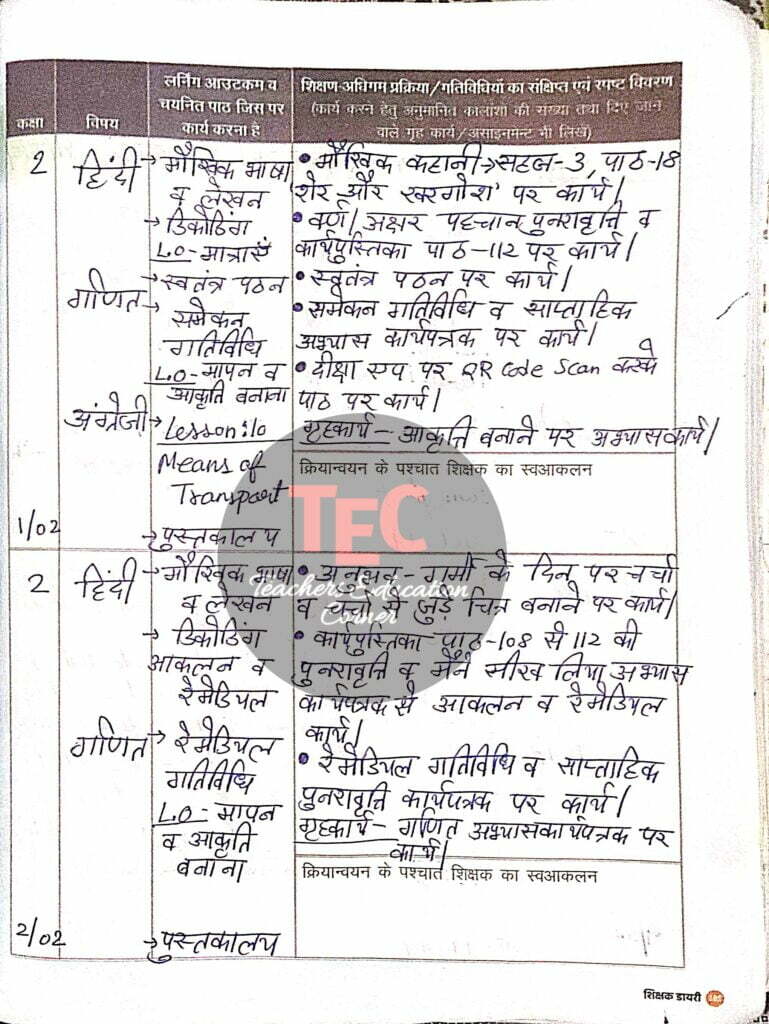 कक्षा
विषय
लर्निंग आउटकम व
चयनित पाठ जिस पर
कार्य करना है
शिक्षण-अधिगम प्रक्रिया/गतिविधियों का संक्षिप्त एवं स्पष्ट विवरण
(कार्य करने हेतु अनुमानित कालांशों की संख्या तथा दिए जाने
वाले गृह कार्य/असाइनमेंट भी लिखें)
2
हिंदी
→ मौखिक भाषा
व लेखन
→ डिकोडिंग
L.O- मात्राएँ
→ स्वतंत्र पठन
गणित
→ समेकन
गतिविधि
L.O- मापन व
आकृति बनाना
अंग्रेजी
→ Lesson:10
Means of
Transport
→ पुस्तकालय
1/02
• मौखिक कहानी → सहज-3, पाठ-18
'शेर और खरगोश' पर कार्य।
• वर्ण/अक्षर पहचान पुनरावृत्ति व
कार्यपुस्तिका पाठ-112 पर कार्य।
• स्वतंत्र पठन पर कार्य।
• समेकन गतिविधि व साप्ताहिक
अभ्यास कार्यपत्रक पर कार्य।
• दीक्षा एप पर QR code Scan करके
पाठ पर कार्य।
गृहकार्य- आकृति बनाने पर अभ्यासकार्य।
क्रियान्वयन के पश्चात शिक्षक का स्वआकलन
TEC
Teachers Education
Corner
2
हिंदी
→ मौखिक भाषा
व लेखन
→ डिकोडिंग
आकलन व
रेमेडियल
गणित
→ रेमेडियल
गतिविधि
L.O- मापन
व आकृति
बनाना
→ पुस्तकालय
2/02
• अनुभव- गर्मी के दिन पर चर्चा
व चर्चा से जुड़े चित्र बनाने पर कार्य।
• कार्यपुस्तिका पाठ-108 से 112 की
पुनरावृत्ति व मैंने सीख लिया अभ्यास
कार्यपत्रक से आकलन व रेमेडियल
कार्य।
• रेमेडियल गतिविधि व साप्ताहिक
पुनरावृत्ति कार्यपत्रक पर कार्य।
गृहकार्य- गणित अभ्यासकार्यपत्रक पर
कार्य।
क्रियान्वयन के पश्चात शिक्षक का स्वआकलन
शिक्षक डायरी